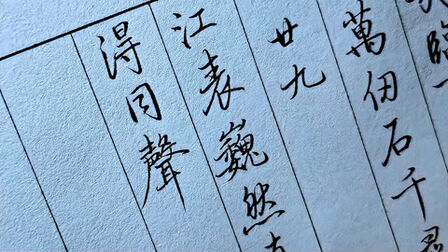 臨
萬佃石千
廿九
江表巍然
得同聲